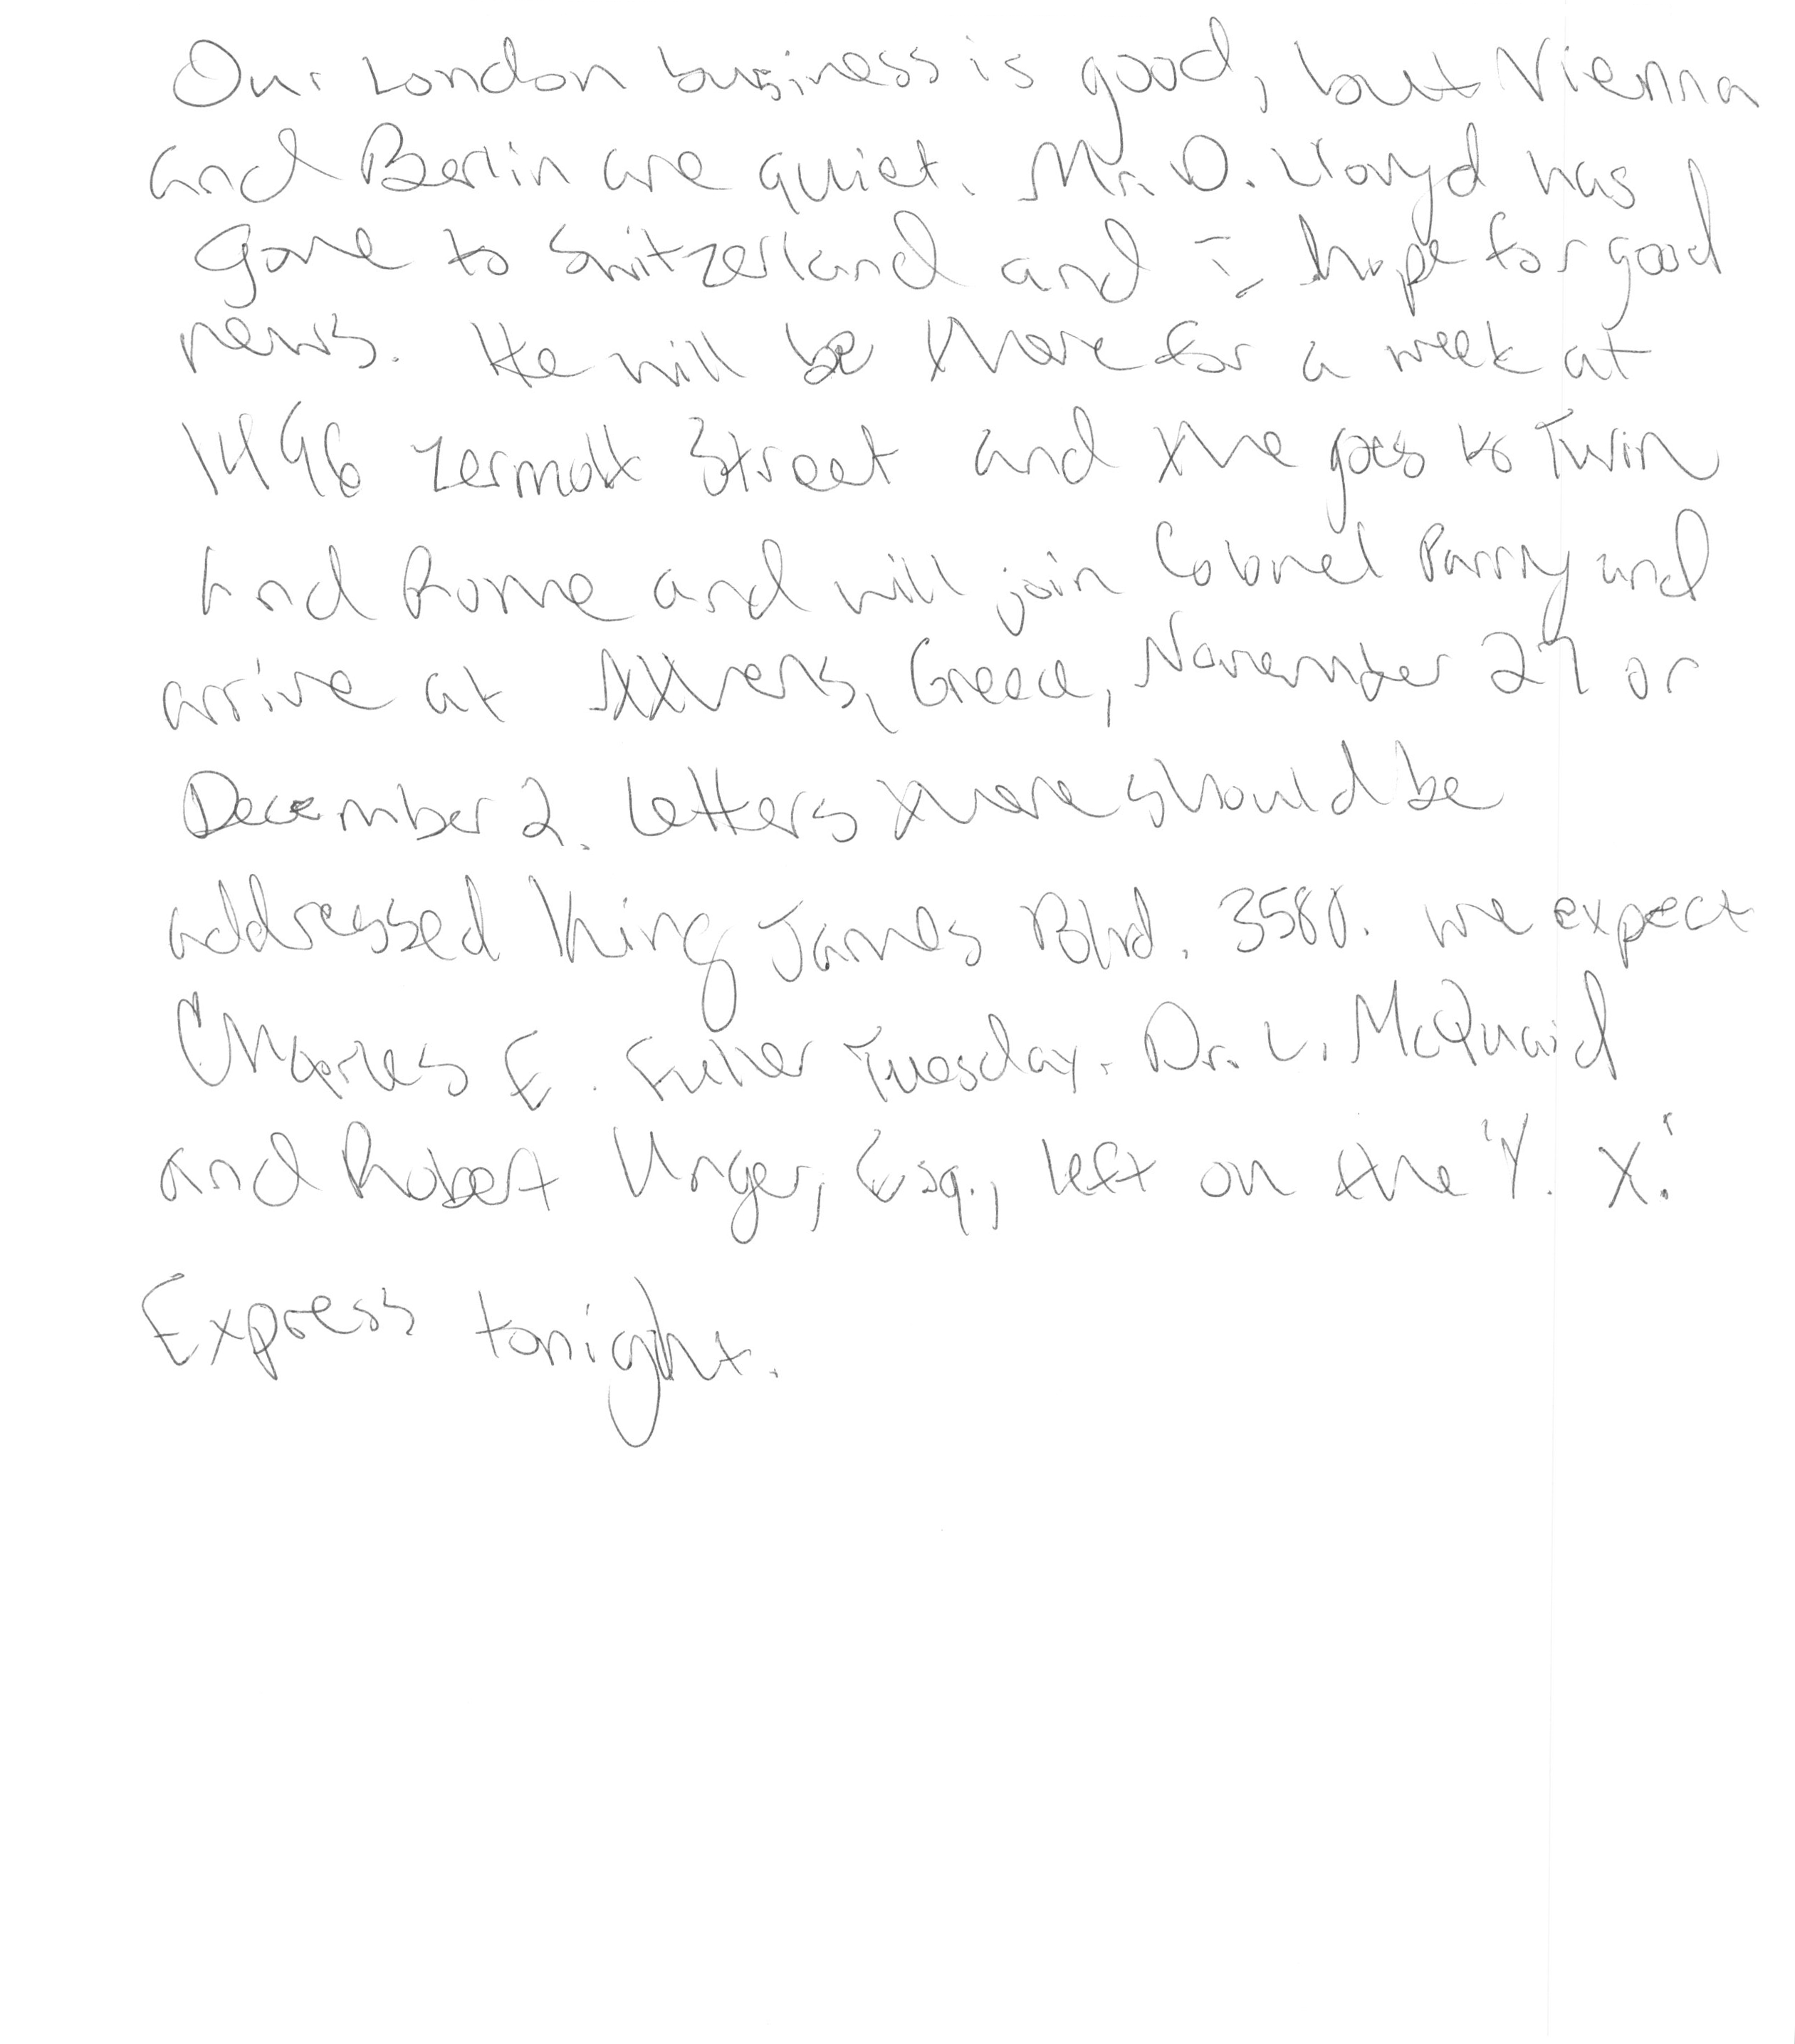 Our London business is good, but Vienna
and Berlin are quiet. Mr. D. Lloyd has
gone to Switzerland and I hope for good
news. He will be there for a week at
1496 Zermott Street and the goes to Turin
and Rome and will join Colonel Parry and
arrive at Athens, Greece, November 27 or
December 2. Letters there should be
addressed King James Blvd. 3580. We expect
Charles E. Fuller Tuesday. Dr. L. McQuaid
and Robert Unger, Esq., left on the "Y. X."
Express tonight.